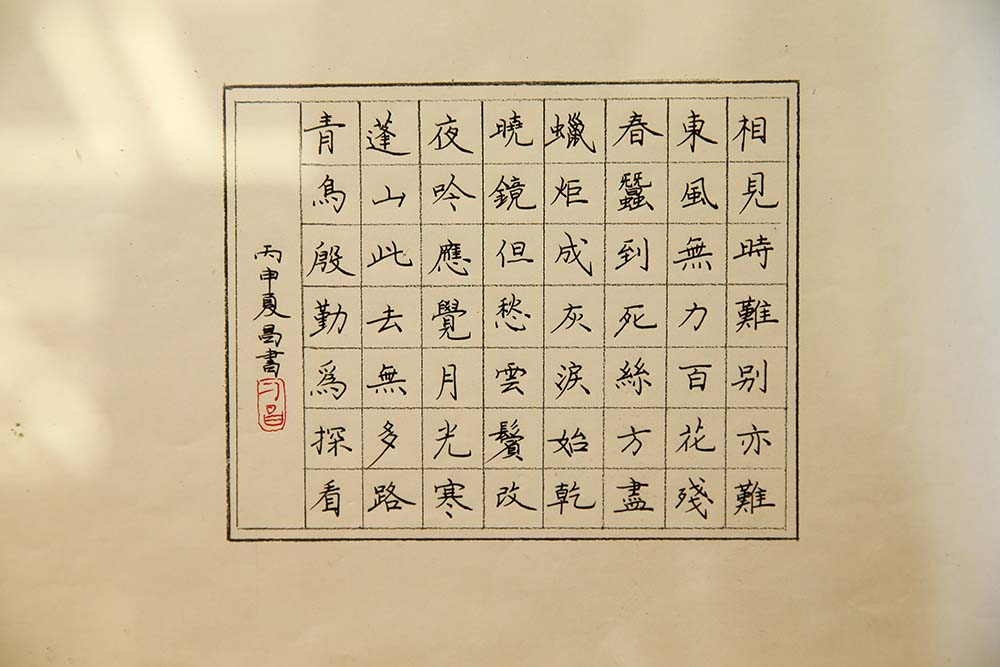 相見時難别亦難
東風無力百花殘
春蠶到死絲方盡
蠟炬成灰淚始乾
曉鏡但愁雲鬢改
夜吟應覺月光寒
蓬山此去無多路
青鳥殷勤爲探看
丙申夏昌書
刁昌